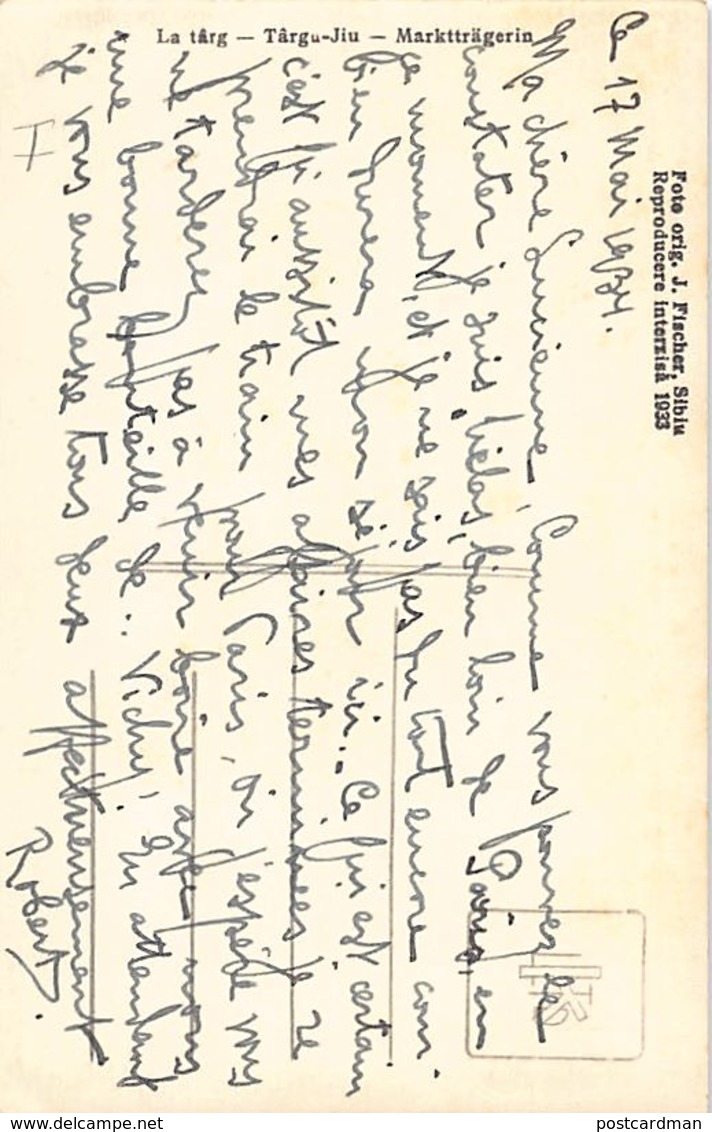 La târg — Târgu-Jiu — Marktträgerin
Foto orig. J. Fischer, Sibiu
Reproducere interzisă 1933
Ce 17 Mai 1934.
Ma chère Lucienne, Comme vous pouvez le
constater je suis hélas, bien loin de Paris, en
ce moment, et je ne sais pas du tout encore com
bien durera mon séjour ici. Ce qui est certain
c'est qu'aussitôt mes affaires terminées je re
prendrai le train pour Paris, où j'espère vous
ne tarderez pas à venir boire avec nous
une bonne bouteille de.. Vichy. En attendant
je vous embrasse tous deux affectueusement
Robert.
postcardman